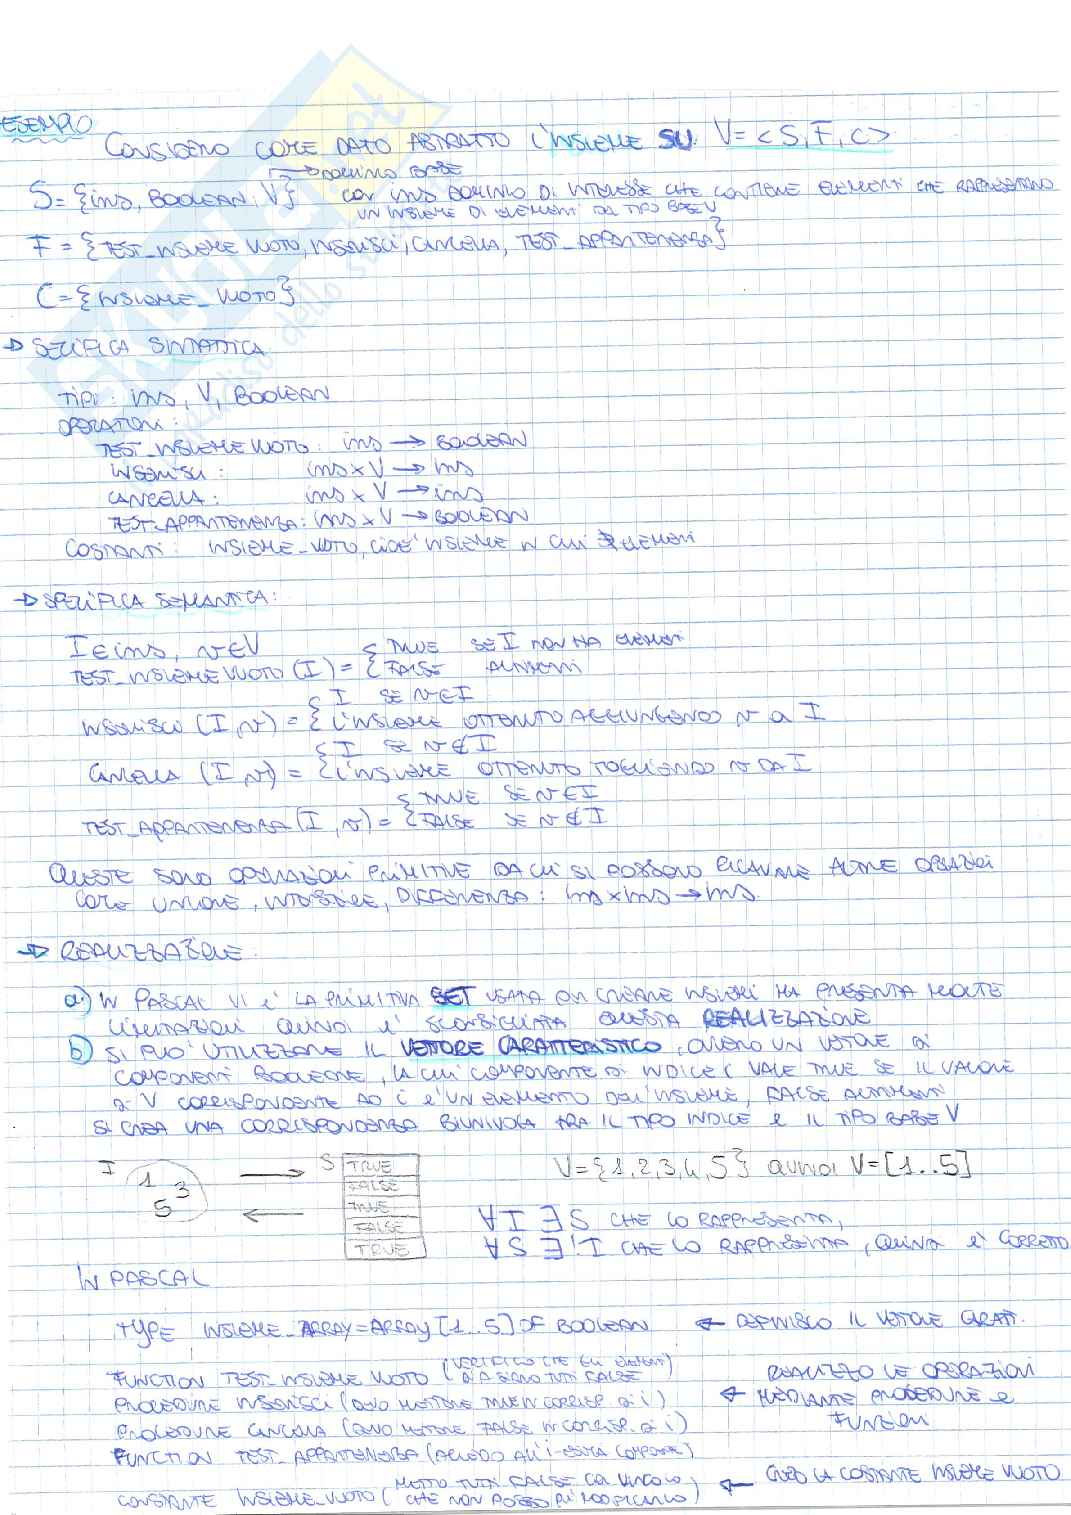 ESEMPIO
CONSIDERO COME DATO ASTRATTO L'INSIEME SU V = <S, F, C>
DOMINIO BASE
S = {ins, BOOLEAN, V} con ins DOMINIO DI INTERESSE CHE CONTIENE ELEMENTI CHE RAPPRESENTANO
UN INSIEME DI ELEMENTI DEL TIPO BASE V
F = {TEST_INSIEME VUOTO, INSERISCI, CANCELLA, TEST_APPARTENENZA}
C = {INSIEME_VUOTO}
→ SPECIFICA SINTATTICA
TIPI: ins, V, BOOLEAN
OPERAZIONI:
TEST_INSIEME VUOTO: ins → BOOLEAN
INSERISCI: ins x V → ins
CANCELLA: ins x V → ins
TEST_APPARTENENZA: ins x V → BOOLEAN
COSTANTI: INSIEME_VUOTO, CIOE' INSIEME IN CUI ∄ ELEMENTI
→ SPECIFICA SEMANTICA:
I ∈ ins, v ∈ V
TEST_INSIEME VUOTO (I) = { TRUE SE I NON HA ELEMENTI
FALSE ALTRIMENTI
INSERISCI (I, v) = { I SE v ∈ I
L'INSIEME OTTENUTO AGGIUNGENDO v a I
CANCELLA (I, v) = { I SE v ∉ I
L'INSIEME OTTENUTO TOGLIENDO v DA I
TEST_APPARTENENZA (I, v) = { TRUE SE v ∈ I
FALSE SE v ∉ I
QUESTE SONO OPERAZIONI PRIMITIVE DA CUI SI POSSONO RICAVARE ALTRE OPERAZIONI
COME UNIONE, INTERSEZIONE, DIFFERENZA: ins x ins → ins.
→ REALIZZAZIONE
a) IN PASCAL VI E' LA PRIMITIVA SET USATA PER CREARE INSIEMI MA PRESENTA MOLTE
LIMITAZIONI QUINDI E' SCONSIGLIATA QUESTA REALIZZAZIONE
b) SI PUO' UTILIZZARE IL VETTORE CARATTERISTICO, OVVERO UN VETTORE DI
COMPONENTI BOOLEANE, LA CUI COMPONENTE DI INDICE i VALE TRUE SE IL VALORE
DI V CORRISPONDENTE AD i E' UN ELEMENTO DELL'INSIEME, FALSE ALTRIMENTI
SI CREA UNA CORRISPONDENZA BIUNIVOCA TRA IL TIPO INDICE e IL TIPO BASE V
I 1 3 5 → ← S TRUE FALSE TRUE FALSE TRUE
V = {1, 2, 3, 4, 5} QUINDI V = [1..5]
∀ I ∃ S CHE LO RAPPRESENTA,
∀ S ∃! I CHE LO RAPPRESENTA, QUINDI E' CORRETTO
IN PASCAL
TYPE INSIEME_ARRAY = ARRAY [1..5] OF BOOLEAN ← DEFINISCO IL VETTORE CARATT.
FUNCTION TEST_INSIEME VUOTO (VERIFICO CHE GLI ELEMENTI DI A SIANO TUTTI FALSE)
PROCEDURE INSERISCI (DEVO METTERE TRUE IN CORRISP. DI i)
PROCEDURE CANCELLA (DEVO METTERE FALSE IN CORRISP. DI i)
FUNCTION TEST_APPARTENENZA (ACCEDO ALL'i-ESIMA COMPONE)
← REALIZZO LE OPERAZIONI
MEDIANTE PROCEDURE e
FUNZIONI
CONSTANTE INSIEME_VUOTO (METTO TUTTI FALSE COL VINCOLO CHE NON POSSO PIÙ MODIFICARLO) ← CREO LA COSTANTE INSIEME VUOTO